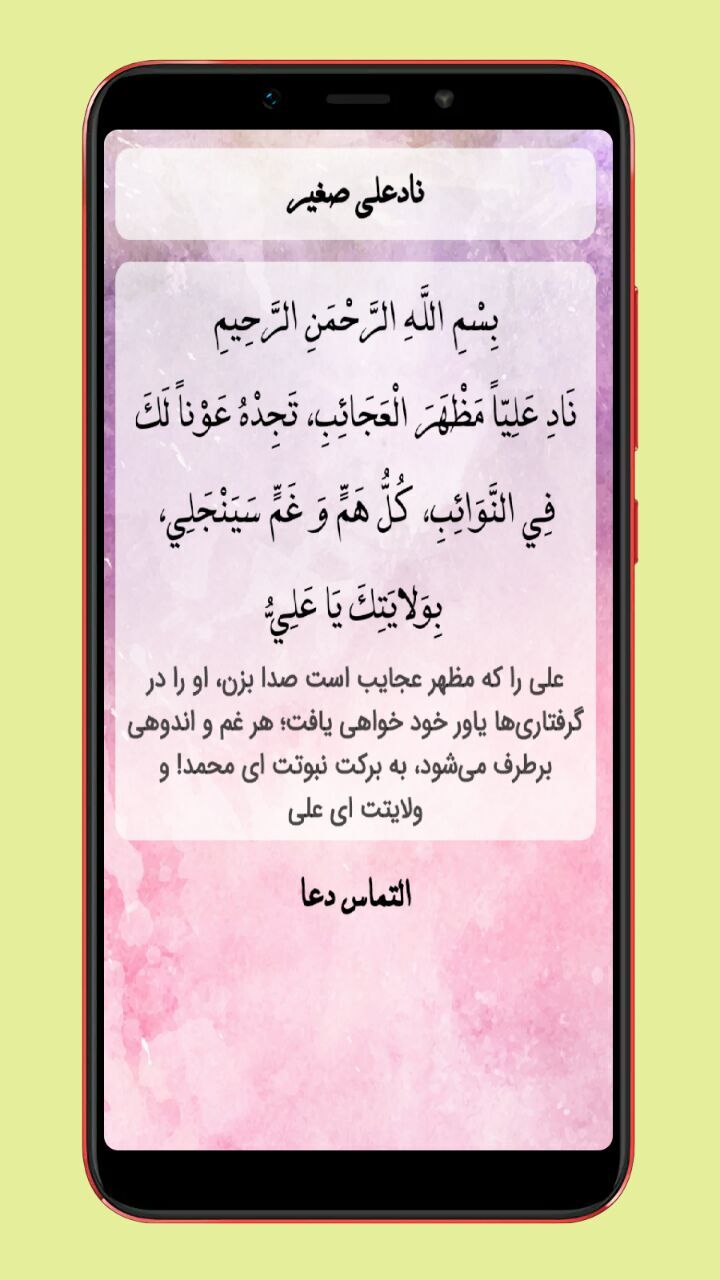 نادعلی صغیر
بِسْمِ اللَّهِ الرَّحْمَنِ الرَّحِيمِ
نَادِ عَلِيّاً مَظْهَرَ الْعَجَائِبِ، تَجِدْهُ عَوْناً لَكَ
فِي النَّوَائِبِ، كُلُّ هَمٍّ وَ غَمٍّ سَيَنْجَلِي،
بِوَلايَتِكَ يَا عَلِيُّ
علی را که مظهر عجایب است صدا بزن، او را در
گرفتاری‌ها یاور خود خواهی یافت؛ هر غم و اندوهی
برطرف می‌شود، به برکت نبوتت ای محمد! و
ولایتت ای علی
التماس دعا